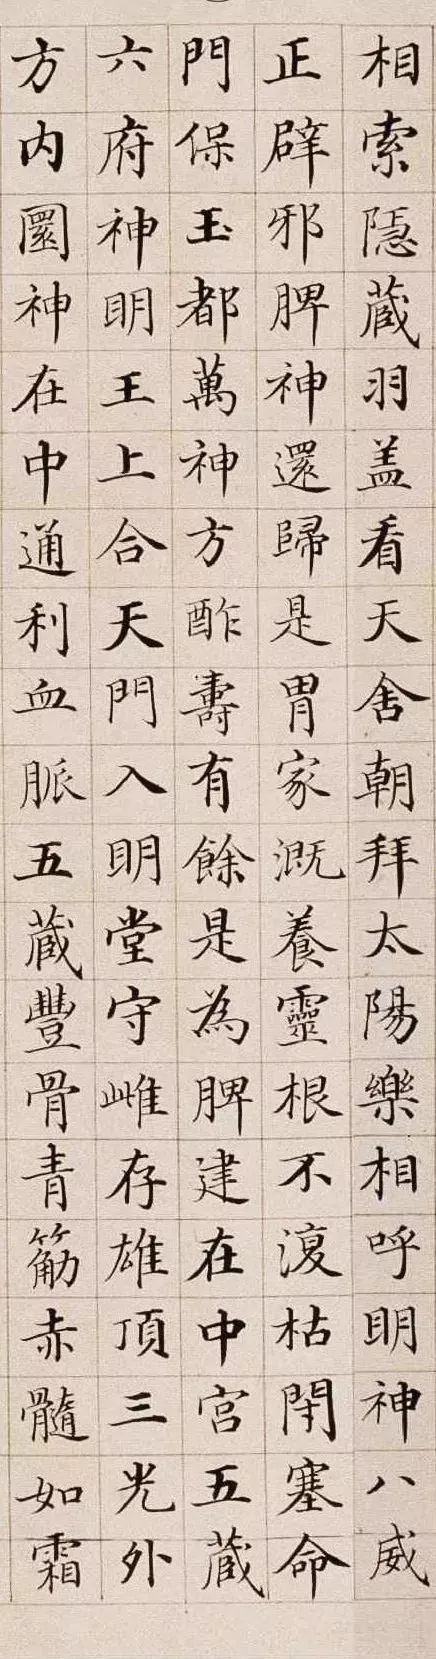 相索隱藏羽盖看天舍朝拜太陽樂相呼明神八威
正辟邪脾神還歸是胃家溉養靈根不復枯閇塞命
門保玉都萬神方酢壽有餘是為脾建在中宮五藏
六府神明王上合天門入明堂守雌存雄頂三光外
方内圎神在中通利血脈五藏豐骨青筋赤髓如霜